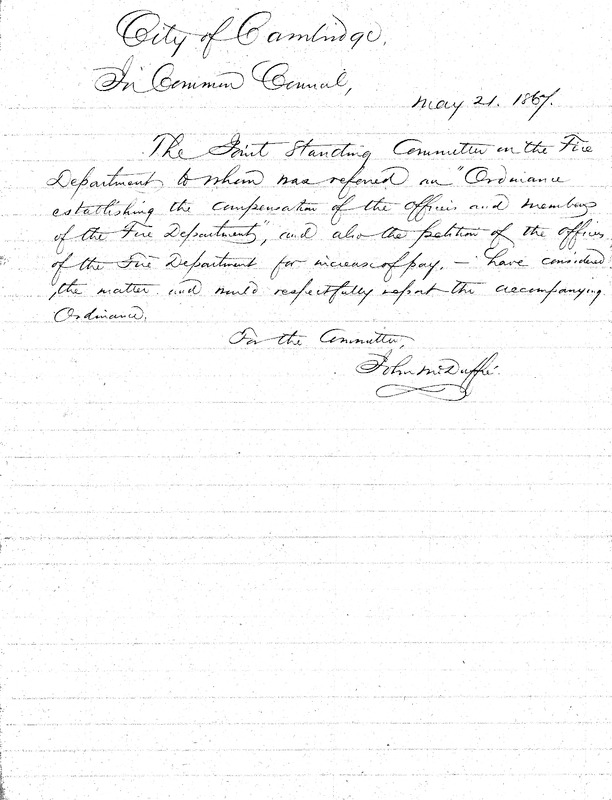 City of Cambridge.
In Common Council,
May 21. 1867.
The Joint Standing Committee on the Fire
Department to whom was referred an "Ordinance
establishing the compensation of the officers and members
of the Fire Department", and also the petition of the officers
of the Fire Department for increase of pay, — have considered
the matter and would respectfully report the accompanying
Ordinance.
For the Committee,
John McDuffie.